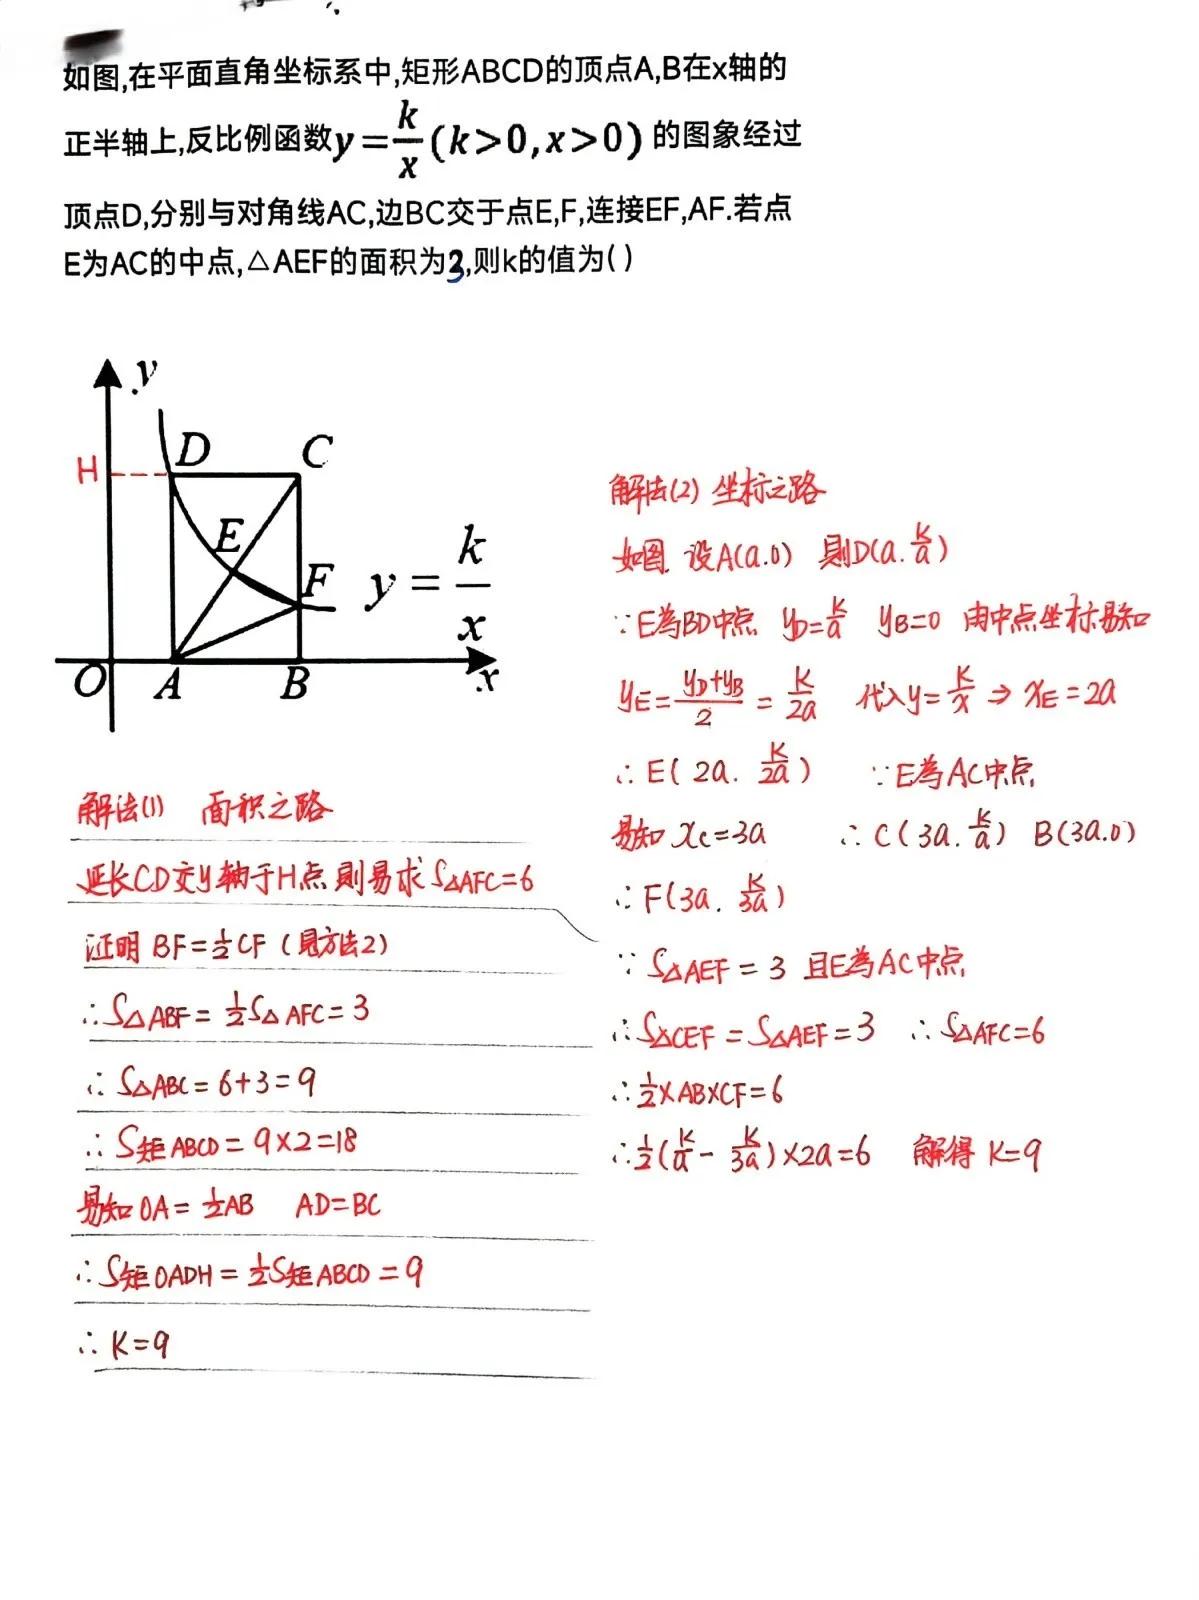 如图,在平面直角坐标系中,矩形ABCD的顶点A,B在x轴的
正半轴上,反比例函数y=k/x(k>0,x>0)的图象经过
顶点D,分别与对角线AC,边BC交于点E,F,连接EF,AF.若点
E为AC的中点,△AEF的面积为3,则k的值为( )
y
H
D
C
E
F
y=k/x
O
A
B
x
解法(1) 面积之路
延长CD交y轴于H点 則易求 S△AFC=6
证明 BF=½CF (見方法2)
∴S△ABF=½S△AFC=3
∴S△ABC=6+3=9
∴S矩ABCD=9×2=18
易知OA=½AB AD=BC
∴S矩OADH=½S矩ABCD=9
∴K=9
解法(2) 坐标之路
如图 设A(a.0) 則D(a.k/a)
∵E為BD中点 yD=k/a yB=0 由中点坐标易知
yE=(yD+yB)/2=k/2a 代入y=k/x⇒xE=2a
∴E(2a.k/2a) ∵E為AC中点
易知xc=3a ∴C(3a.k/a) B(3a.0)
∴F(3a.k/3a)
∵S△AEF=3 且E為AC中点
∴S△CEF=S△AEF=3 ∴S△AFC=6
∴½×AB×CF=6
∴½(k/a-k/3a)×2a=6 解得 K=9